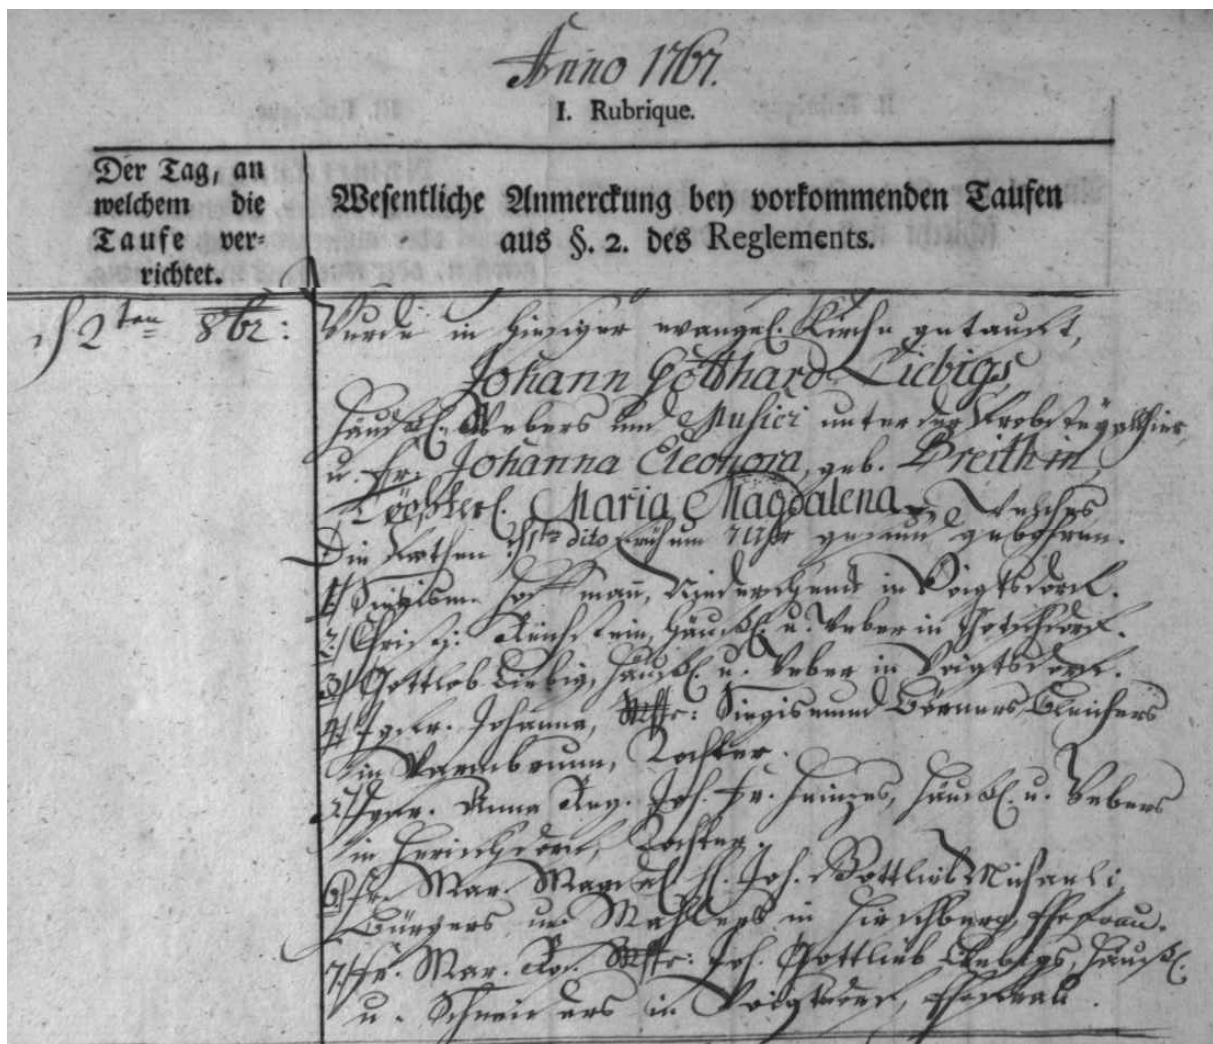 Anno 1767.
I. Rubrique.
Der Tag, an
welchem die
Taufe ver-
richtet.
Wesentliche Anmerckung bey vorkommenden Taufen
aus §. 2. des Reglements.
d 2ten 8br:
Wurde in hiesiger evangel. Kirche getauft,
Johann Gotthard Liebigs
Häusl. Webers und Musici unter der Probstey allhier
u. Fr. Johanna Eleonora, geb. Breithin,
Töchterl. Maria Magdalena welches
d 1ten dito früh um 7 Uhr gebohren.
Die Pathen
1.) Siegism. Hoffmañ, in Voigtsdorf.
2.) Christ. Reichstein, Häusl. u. Weber in
3.) Gottlob Liebig, Häusl. u. Weber in Voigtsdorf.
4.) Jgfr. Johanna, Mstr: Siegismund Börners, Bleichers
in Warmbrunn, Tochter.
5.) Jgfr. Anna Ros. Joh. Fr. Heinzes, Häusl. u. Webers
in Herischdorf, Tochter.
6.) Fr. Mar. Magdal. H. Joh. Gottlieb Michaeli,
Bürgers und Mahlers in Hirschberg, Ehefrau.
7.) Fr. Mar. Ros. Mstr: Joh. Gottlieb Liebigs, Häusl.
u. Schneiders in Voigtsdorf, Ehefrau.